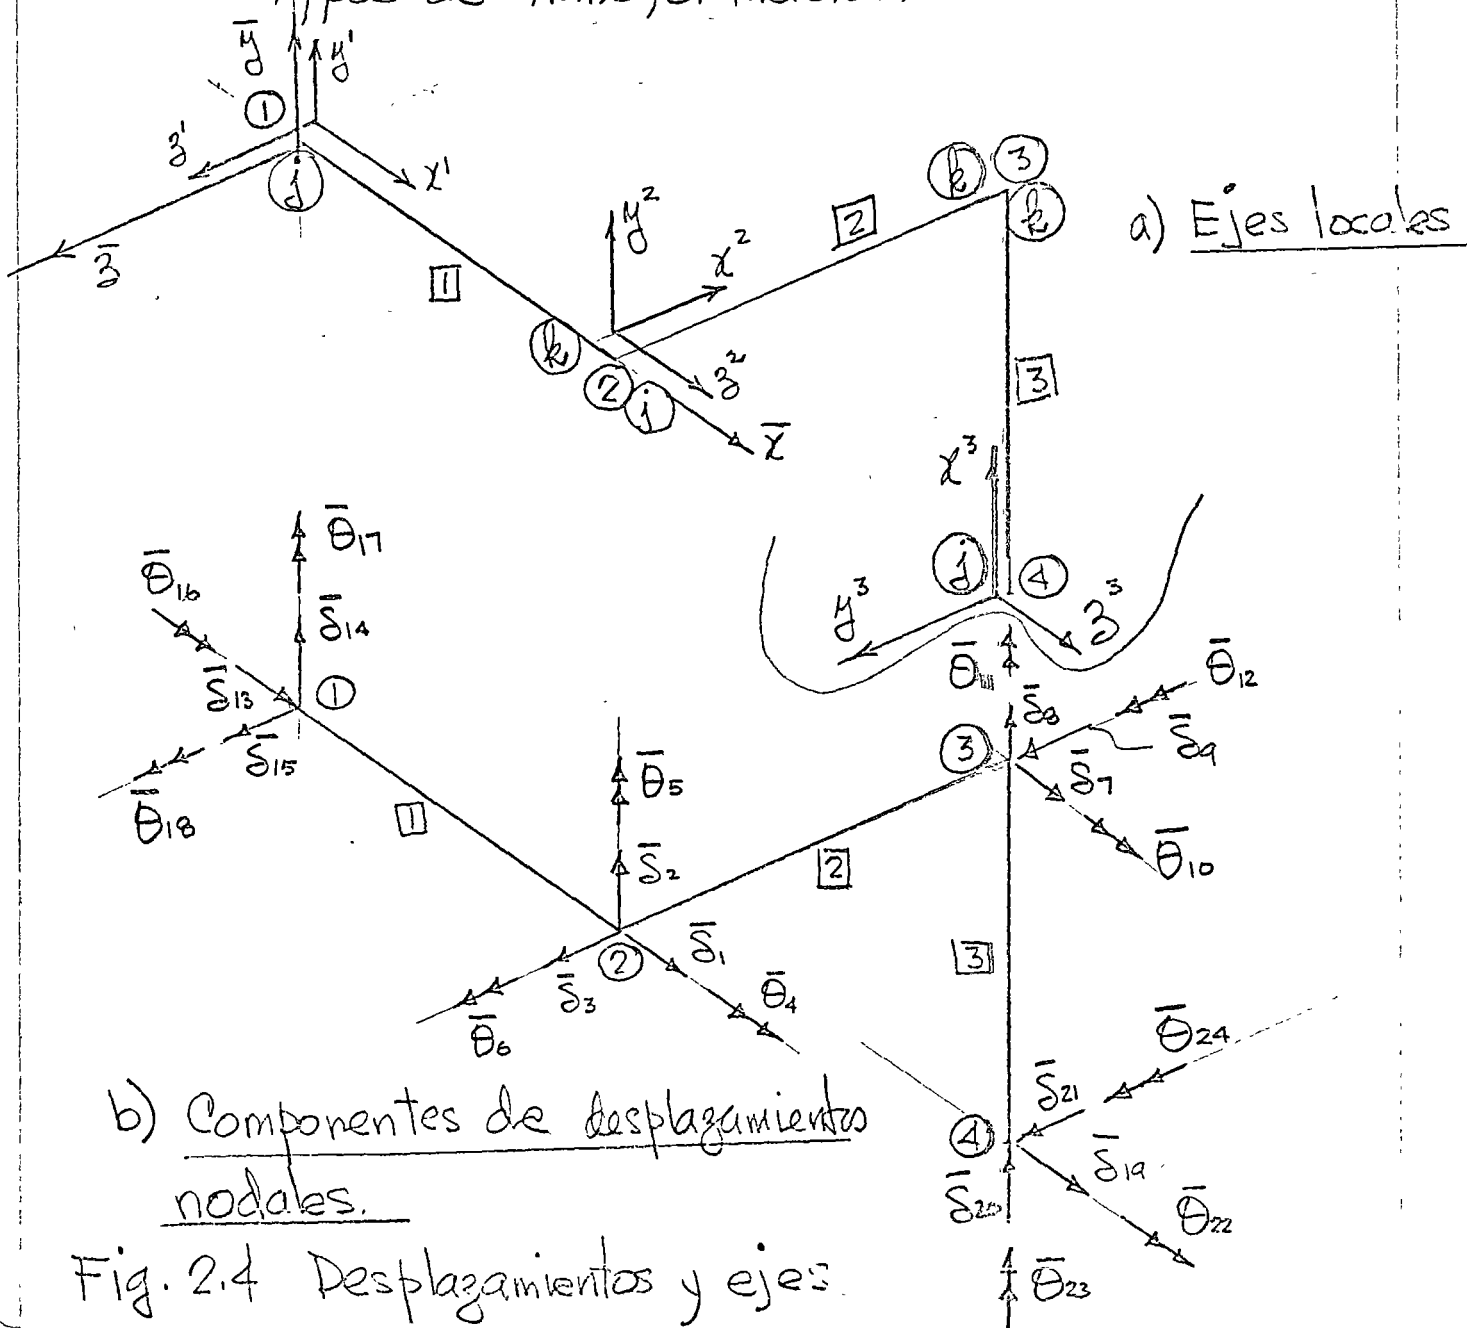 ȳ
y¹
①
z¹
x¹
j
z̄
1
y²
x²
2
k
3
k
a) Ejes locales
k
2
j
z²
x̄
3
x³
j
4
y³
z³
θ̄16
θ̄17
δ̄14
δ̄13
①
δ̄15
θ̄18
1
θ̄5
δ̄2
2
δ̄1
θ̄4
δ̄3
θ̄6
2
θ̄11
θ̄12
δ̄8
δ̄9
3
δ̄7
θ̄10
3
θ̄24
δ̄21
4
δ̄19
δ̄20
θ̄22
θ̄23
b) Componentes de desplazamientos
nodales.
Fig. 2.4 Desplazamientos y ejes